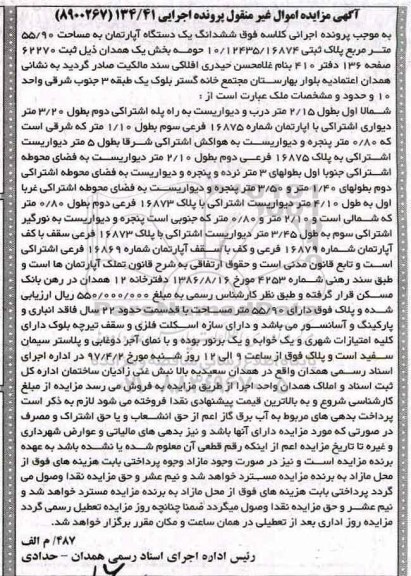 آگهی مزایده اموال غیر منقول پرونده اجرایی ۱۳۴/۴۱ (۸۹۰۰۲۶۷)
به موجب پرونده اجرائی کلاسه فوق ششدانگ یک دستگاه آپارتمان به مساحت ۵۵/۹۰
متر مربع پلاک ثبتی ۱۰/۱۲۴۳۵/۱۶۸۷۴ حومه بخش یک همدان ذیل ثبت ۶۲۲۷۰
صفحه ۱۳۶ دفتر ۴۱۰ بنام غلامحسن حیدری افلاکی سند مالکیت صادر گردید به نشانی
همدان اعتمادیه بلوار بهارستان مجتمع خانه گستر بلوک یک طبقه ۳ جنوب شرقی واحد
۱۰ و حدود و مشخصات ملک عبارت است از :
شمالا اول بطول ۲/۱۵ متر درب و دیواریست به راه پله اشتراکی دوم بطول ۳/۲۰ متر
دیواری اشتراکی با اپارتمان شماره ۱۶۸۷۵ فرعی سوم بطول ۱/۱۰ متر که شرقی است
که ۰/۸۰ متر پنجره و دیواریست به هواکش اشتراکی شرقا بطول ۵ متر دیواریست
اشتراکی به پلاک ۱۶۸۷۵ فرعی دوم بطول ۲/۱۰ متر دیواریست به فضای محوطه
اشتراکی جنوبا اول بطولهای ۳ متر نرده و پنجره و دیواریست به فضای محوطه اشتراکی
دوم بطولهای ۱/۴۰ متر و ۲/۵۰ متر پنجره و دیواریست به فضای محوطه اشتراکی غربا
اول به طول ۴/۱۰ متر دیواریست اشتراکی با پلاک ۱۶۸۷۳ فرعی دوم بطول ۰/۸۰ متر
که شمالی است و ۲/۸۰ متر و ۰/۸۰ متر که جنوبی است پنجره و دیواریست به نورگیر
اشتراکی سوم به طول ۳/۴۵ متر دیواریست اشتراکی با پلاک ۱۶۸۷۳ فرعی سقف با کف
آپارتمان شماره ۱۶۸۷۹ فرعی و کف با سقف آپارتمان شماره ۱۶۸۶۹ فرعی اشتراکی
است و تابع قانون مدنی است و حقوق ارتفاقی به شرح قانون تملک آپارتمان ها است و
طبق سند رهنی شماره ۴۲۵۳ مورخ ۱۳۸۶/۸/۱۶ دفترخانه ۱۲ همدان در رهن بانک
مسکن قرار گرفته و طبق نظر کارشناس رسمی به مبلغ ۵۵۰/۰۰۰/۰۰۰ ریال ارزیابی
شده و پلاک فوق دارای ۵۵/۹۰ متر مساحت با قدمت حدود ۲۲ سال فاقد انباری و
پارکینگ و آسانسور می باشد و دارای سازه اسکلت فلزی و سقف تیرچه بلوک دارای
کلیه امتیازات شهری و یک خوابه و یک برنور بوده و با نمای آجر دوغابی و پلاستر سیمان
سفید است و پلاک فوق از ساعت ۹ الی ۱۲ روز شنبه مورخ ۹۷/۴/۲ در اداره اجرای
اسناد رسمی همدان واقع در همدان سعیدیه بالا نبش غنی زادیان ساختمان اداره کل
ثبت اسناد و املاک همدان واحد اجرا از طریق مزایده به فروش می رسد مزایده از مبلغ
کارشناسی شروع و به بالاترین قیمت پیشنهادی نقدا فروخته می شود لازم به ذکر است
پرداخت بدهی های مربوط به آب برق گاز اعم از حق انشعاب و یا حق اشتراک و مصرف
در صورتی که مورد مزایده دارای آنها باشد و نیز بدهی های مالیاتی و عوارض شهرداری
و غیره تا تاریخ مزایده اعم از اینکه رقم قطعی آن معلوم شده یا نشده باشد به عهده
برنده مزایده است و نیز در صورت وجود مازاد وجوه پرداختی بابت هزینه های فوق از
محل مازاد به برنده مزایده مسترد خواهد شد و نیم عشر و حق مزایده نقدا وصول می
گردد پرداختی بابت هزینه های فوق از محل مازاد به برنده مزایده مسترد خواهد شد و
نیم عشر و حق مزایده نقدا وصول میگردد ضمنا چنانچه روز مزایده تعطیل رسمی گردد
مزایده روز اداری بعد از تعطیلی در همان ساعت و مکان مقرر برگزار خواهد شد.
۴۸۷/ م الف
رئیس اداره اجرای اسناد رسمی همدان – حدادی